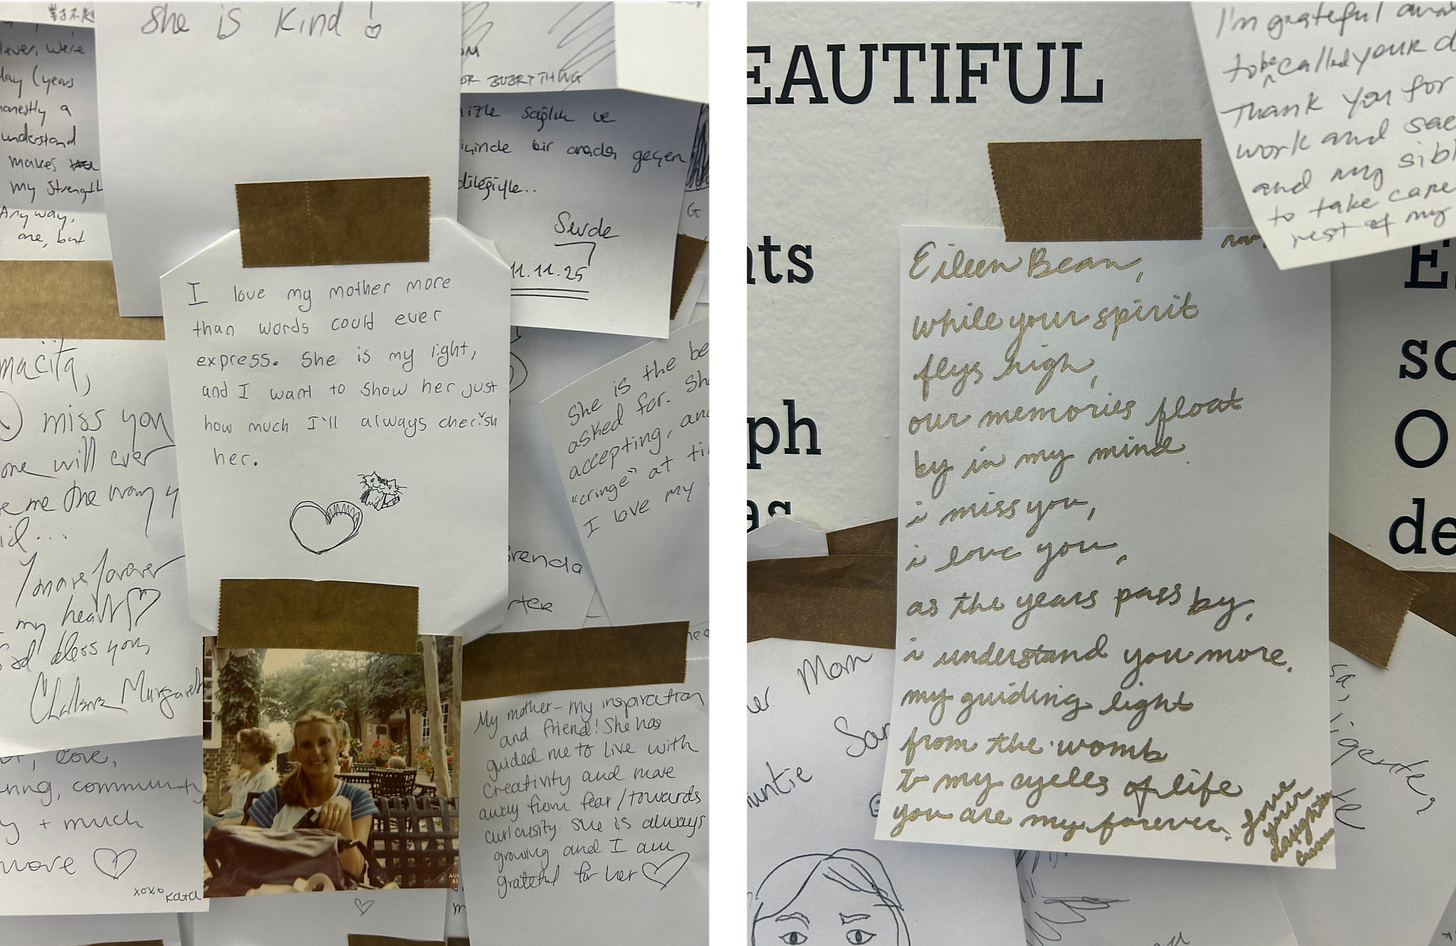 She is kind!
ever, we're
day (years
honestly a
understand
makes
my strength
Anyway,
one, but
FOR EVERYTHING
sağlık ve
içinde bir arada geçen
dileğiyle..
11.11.25
G
I love my mother more
than words could ever
express. She is my light,
and I want to show her just
how much I'll always cherish
her.
macita,
miss you
one will ever
me the way y
forever
my heart
God bless you,
love,
community
y + much
move
xoxo Kara
She is the be
asked for. Sh
accepting, an
"cringe" at ti
I love my
Brenda
My mother - my inspiration
and friend! She has
guided me to live with
creativity and move
away from fear/towards
curiosity she is always
growing and I am
grateful for her
EAUTIFUL
nts
ph
as
E
so
O
de
I'm grateful
to be called your d
Thank you for
work and sac
and my sibl
to take care
rest of my
Eileen Bean,
while your spirit
flys high,
our memories float
by in my mind.
i miss you,
i love you,
as the years pass by,
i understand you more.
my guiding light
from the womb
to my cycles of life
you are my forever.
love
your
daughter
er Mom
Auntie